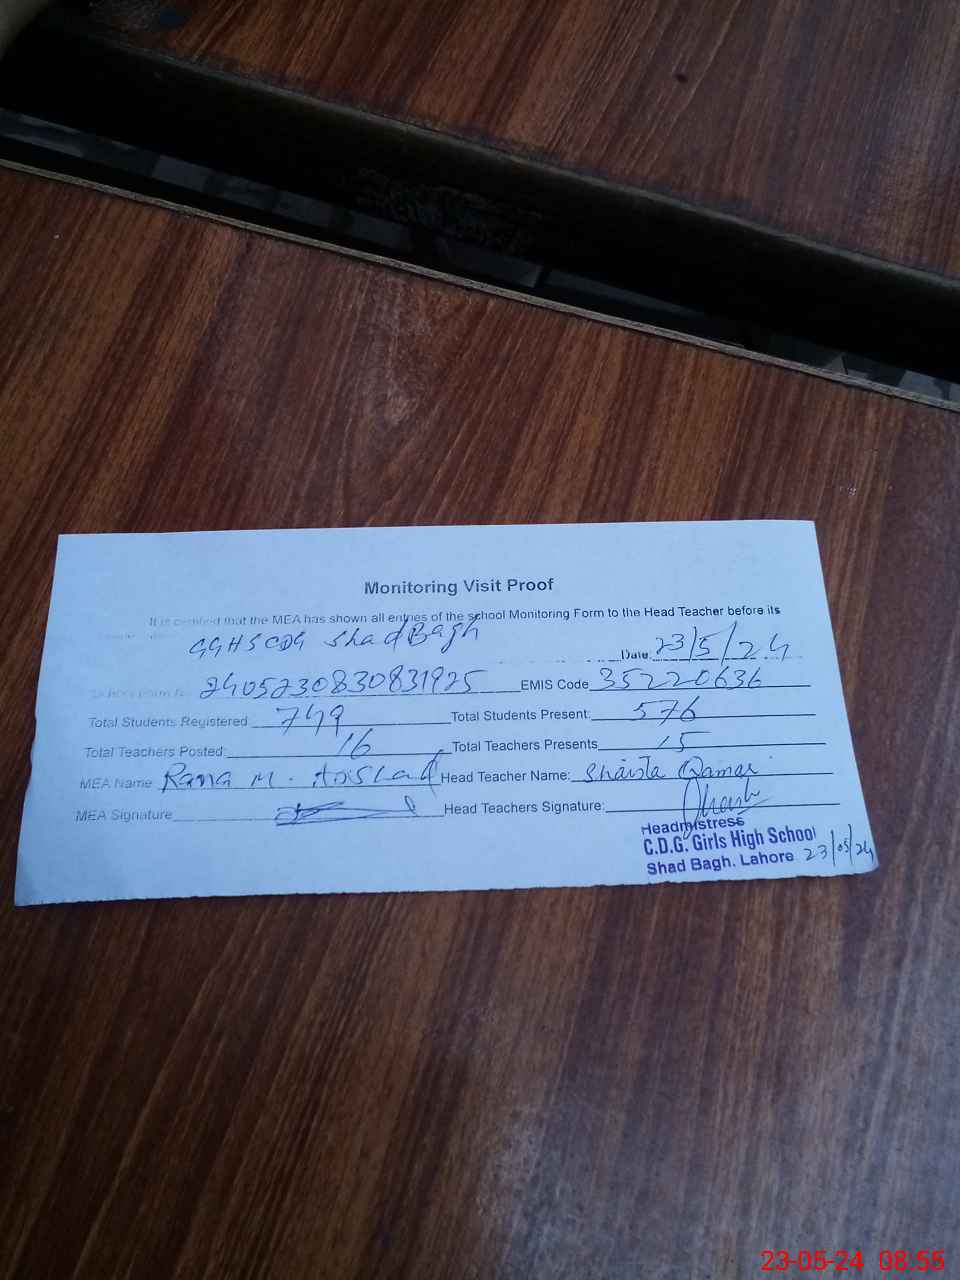 Monitoring Visit Proof
It is certified that the MEA has shown all entries of the school Monitoring Form to the Head Teacher before its
GGHSCDG Shad Bagh Date: 23/5/24
2405230830831925 EMIS Code 35220636
Total Students Registered 749 Total Students Present: 576
Total Teachers Posted: 16 Total Teachers Presents 15
MEA Name Rana M. Arshad Head Teacher Name: Shaista Qamar
MEA Signature Head Teachers Signature:
Headmistress
C.D.G. Girls High School
Shad Bagh. Lahore 23/05/24
23-05-24 08:55